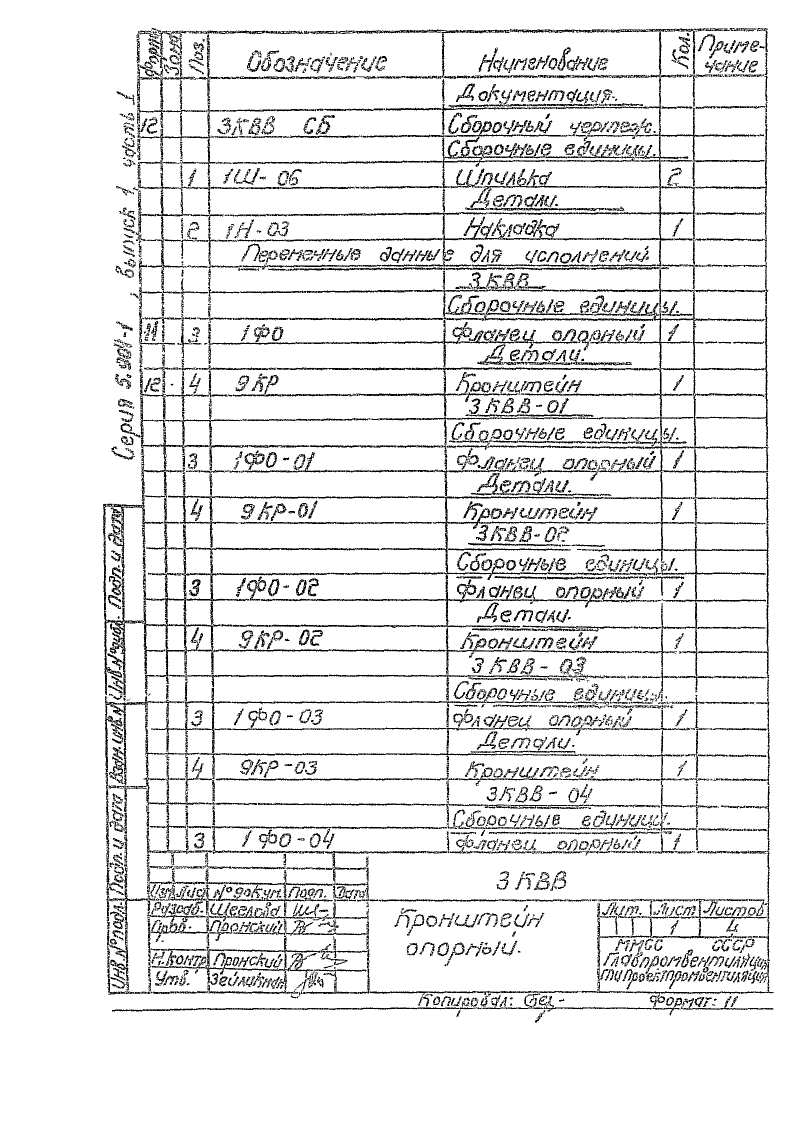 Форм. Зона Поз. Обозначение Наименование Кол. Приме-
чание
Документация.
12 3КВВ СБ Сборочный чертеж.
Сборочные единицы.
1 1Ш-06 Шпилька 2
Детали.
2 1Н-03 Накладка 1
Переменные данные для исполнений
3КВВ
Сборочные единицы.
11 3 1ФО Фланец опорный 1
Детали.
12 4 9КР Кронштейн 1
3КВВ-01
Сборочные единицы.
3 1ФО-01 Фланец опорный 1
Детали.
4 9КР-01 Кронштейн 1
3КВВ-02
Сборочные единицы.
3 1ФО-02 Фланец опорный 1
Детали.
4 9КР-02 Кронштейн 1
3КВВ-03
Сборочные единицы.
3 1ФО-03 Фланец опорный 1
Детали.
4 9КР-03 Кронштейн 1
3КВВ-04
Сборочные единицы.
3 1ФО-04 Фланец опорный 1
Серия 5.904-1, выпуск 1, часть 1
Подп. и дата
Инв. № дубл.
Взам. инв. №
Подп. и дата
Инв. № подл.
3КВВ
Изм. Лист № докум. Подп. Дата
Разраб.
Пров. Пронский
Н.контр Пронский
Утв.
Кронштейн
опорный.
Лит. Лист Листов
1 4
ММСС СССР
Главпромвентиляция
Гипроектпромвентиляция
Копировал: Формат: 11